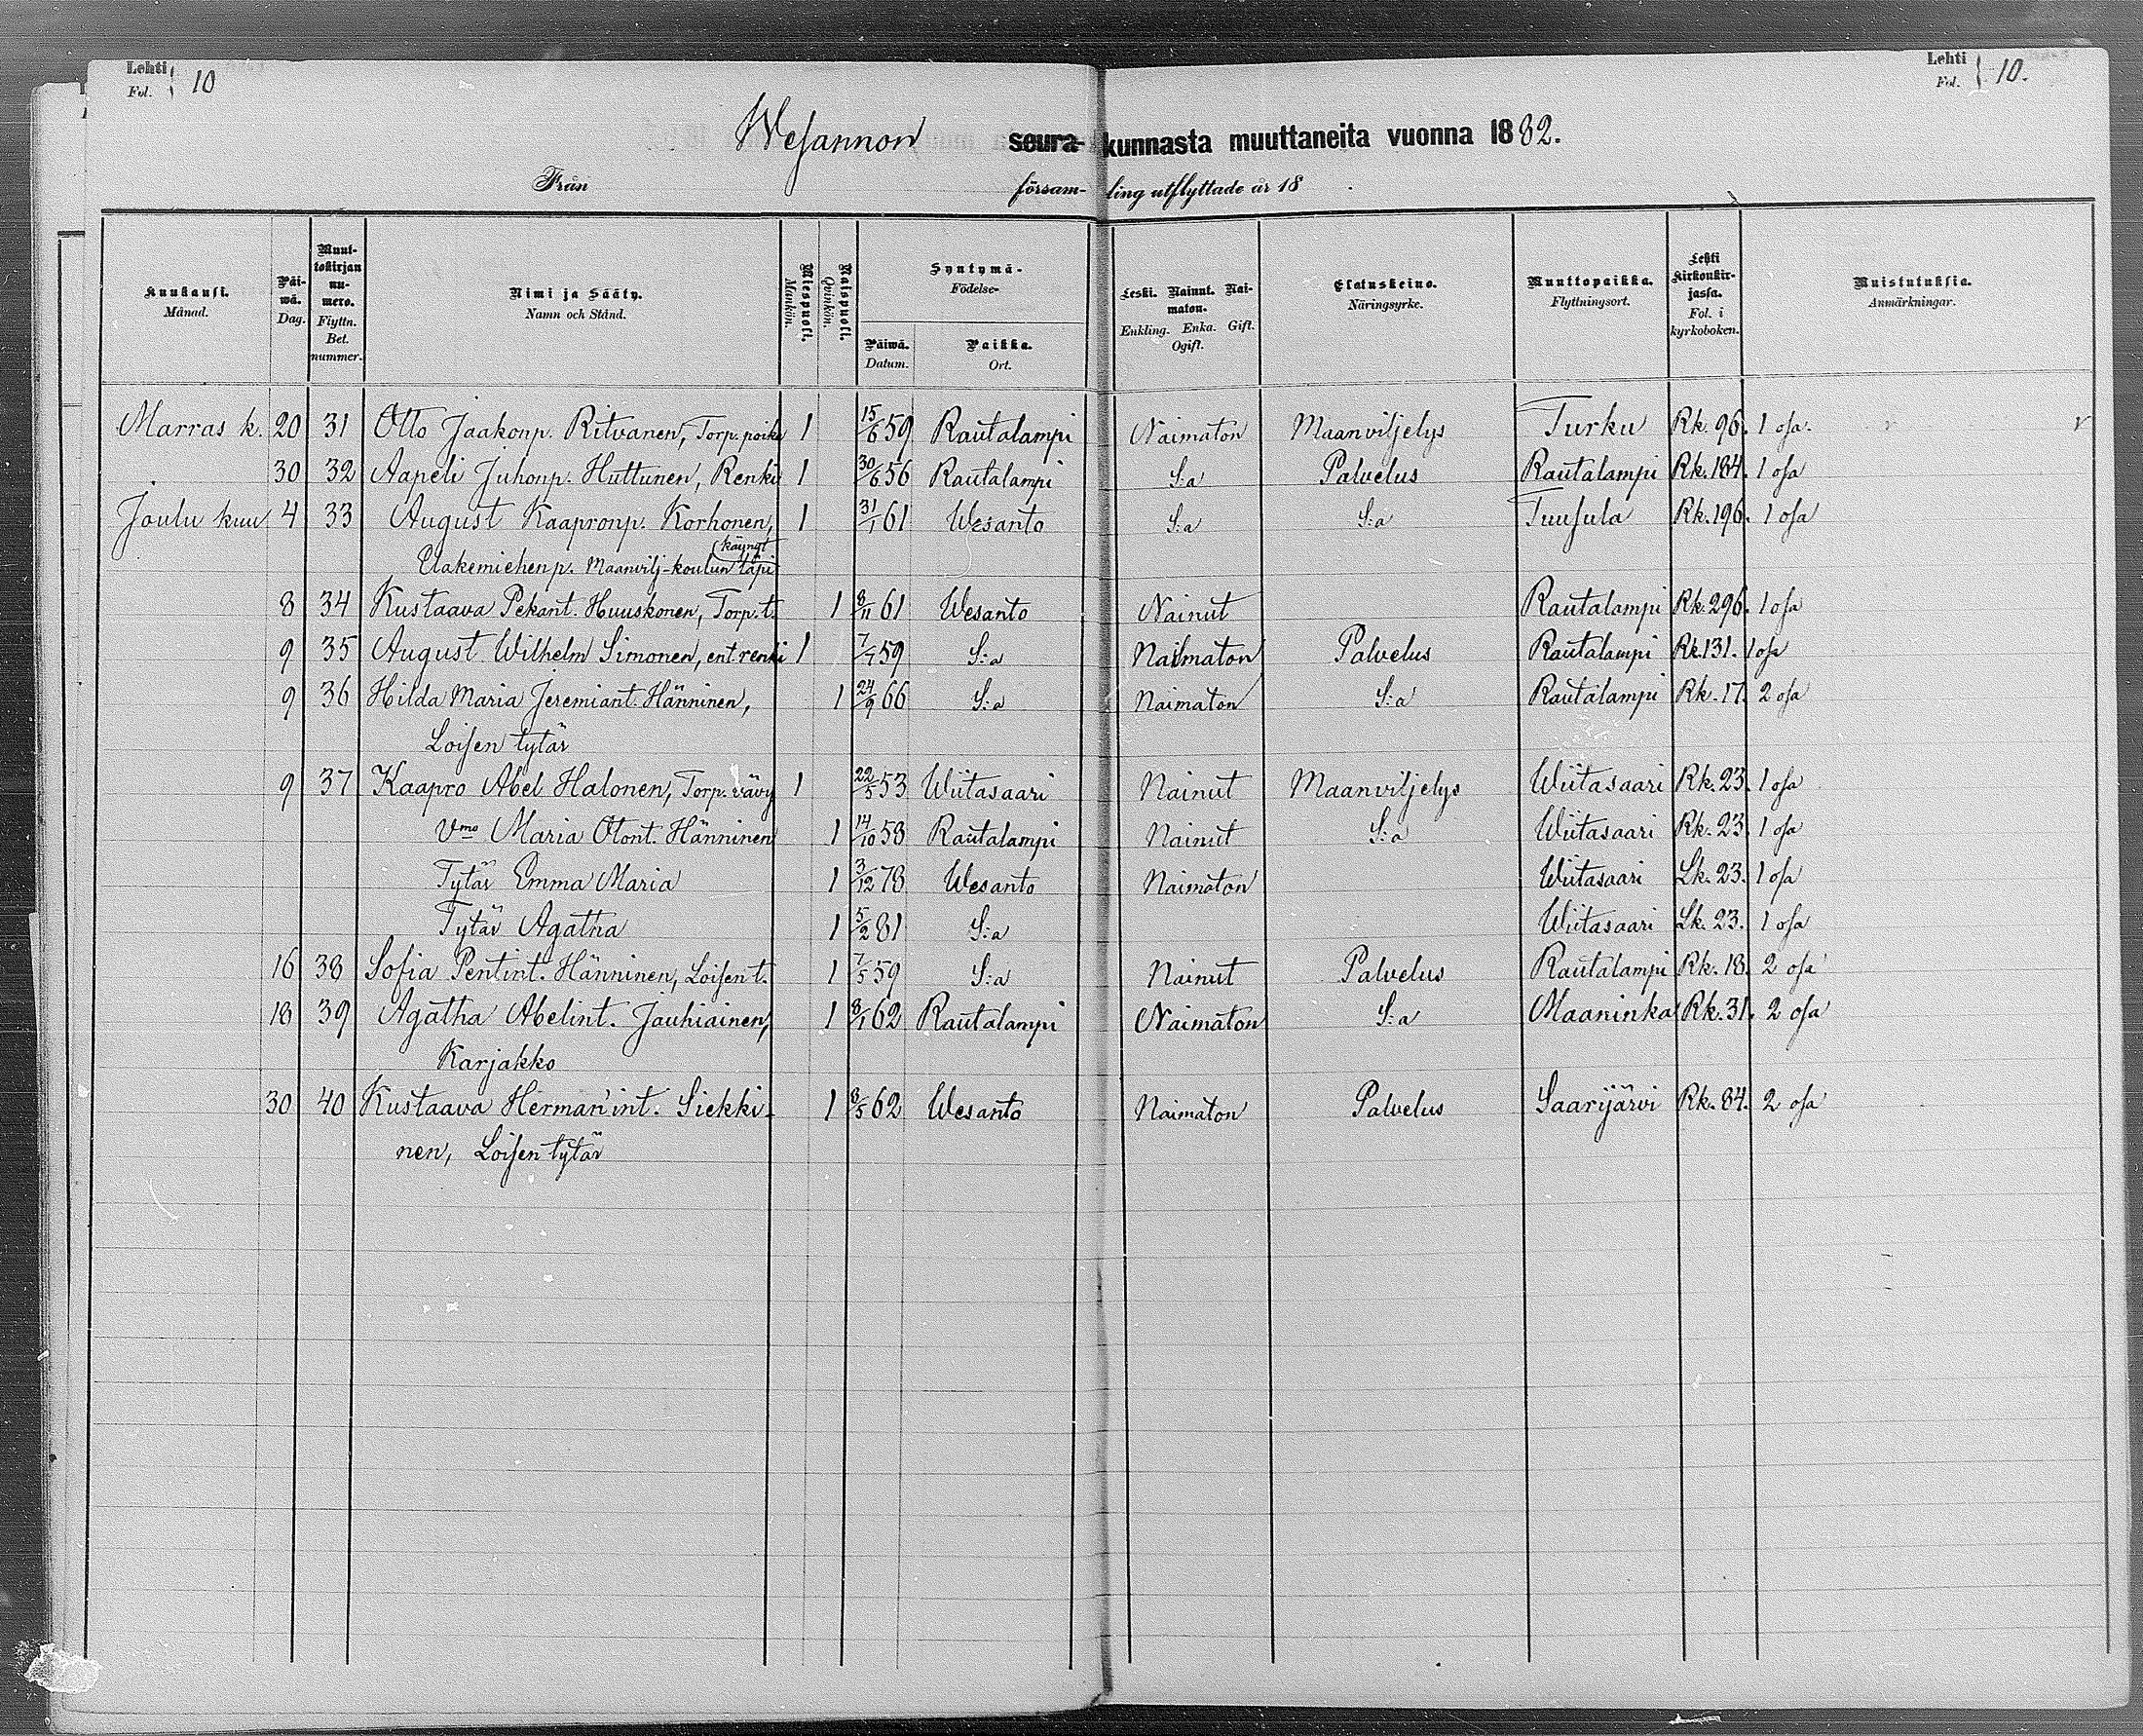 Lehti Fol. 10
Lehti Fol. 10.
Wesannon seura-kunnasta muuttaneita vuonna 1882.
Från försam-ling utflyttade år 18 .
Kuukausi. Månad.
Päi-wä. Dag.
Muut-tokirjan nu-mero. Flyttn. Bet. nummer.
Nimi ja Sääty. Namn och Stånd.
Miespuoli. Mankön.
Naispuoli. Qvinkön.
Syntymä- Födelse-
Päiwä. Datum.
Paikka. Ort.
Leski. Nainut. Nai-maton. Enkling. Enka. Gift. Ogift.
Elatuskeino. Näringsyrke.
Muuttopaikka. Flyttningsort.
Lehti kirkonkir-jassa. Fol. i kyrkoboken.
Muistutuksia. Anmärkningar.
Marras k. 20 31 Otto Jaakonp. Ritvanen, Torp. poika 1 15/6 59 Rautalampi Naimaton Maanviljelys Turku Rk. 96. 1 osa.
30 32 Aapeli Juhonp. Huttunen, Renki 1 30/6 56 Rautalampi S:a Palvelus Rautalampi Rk. 184. 1 osa
Joulu kuu 4 33 August Kaapronp. Korhonen, 1 31/1 61 Wesanto S:a S:a Tuusula Rk. 196. 1 osa
käynyt
Elakemiehen p. Maanvilj-koulun läpi
8 34 Kustaava Pekant. Huuskonen, Torp. t. 1 8/11 61 Wesanto Nainut Rautalampi Rk. 296. 1 osa
9 35 August Wilhelm Simonen, ent renki 1 7/7 59 S:a Naimaton Palvelus Rautalampi Rk. 131. 1 osa
9 36 Hilda Maria Jeremiant. Hänninen, 1 24/9 66 S:a Naimaton S:a Rautalampi Rk. 17. 2 osa
Loisen tytär
9 37 Kaapro Abel Halonen, Torp. vävy 1 22/5 53 Wiitasaari Nainut Maanviljelys Wiitasaari Rk. 23. 1 osa
Vmo Maria Otont. Hänninen 1 14/10 58 Rautalampi Nainut S:a Wiitasaari Rk. 23. 1 osa
Tytär Emma Maria 1 3/12 78 Wesanto Naimaton Wiitasaari Lk. 23. 1 osa
Tytär Agatha 1 5/2 81 S:a Wiitasaari Lk. 23. 1 osa
16 38 Sofia Pentint. Hänninen, Loisen t. 1 7/5 59 S:a Nainut Palvelus Rautalampi Rk. 18. 2 osa
18 39 Agatha Abelint. Jauhiainen, 1 8/1 62 Rautalampi Naimaton S:a Maaninka Rk. 31. 2 osa
Karjakko
30 40 Kustaava Herman'int. Siekki- 1 8/5 62 Wesanto Naimaton Palvelus Saarijärvi Rk. 84. 2 osa
nen, Loisen tytär